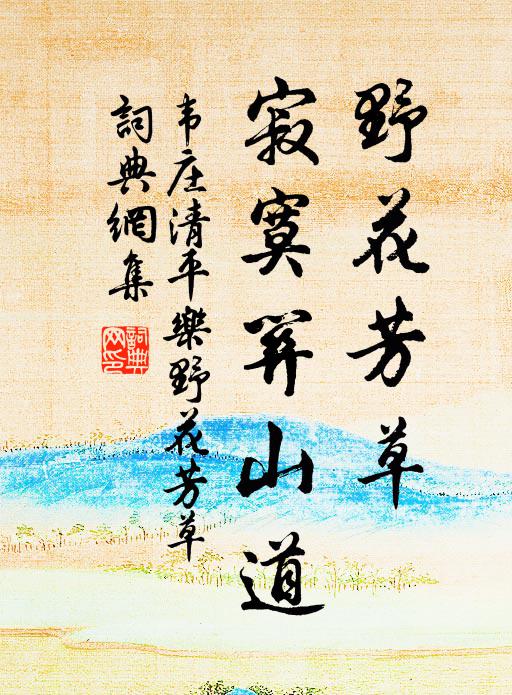 野花芳草
寂寞関山道
韦庄清平樂野花芳草
詞典網集
詞典網印